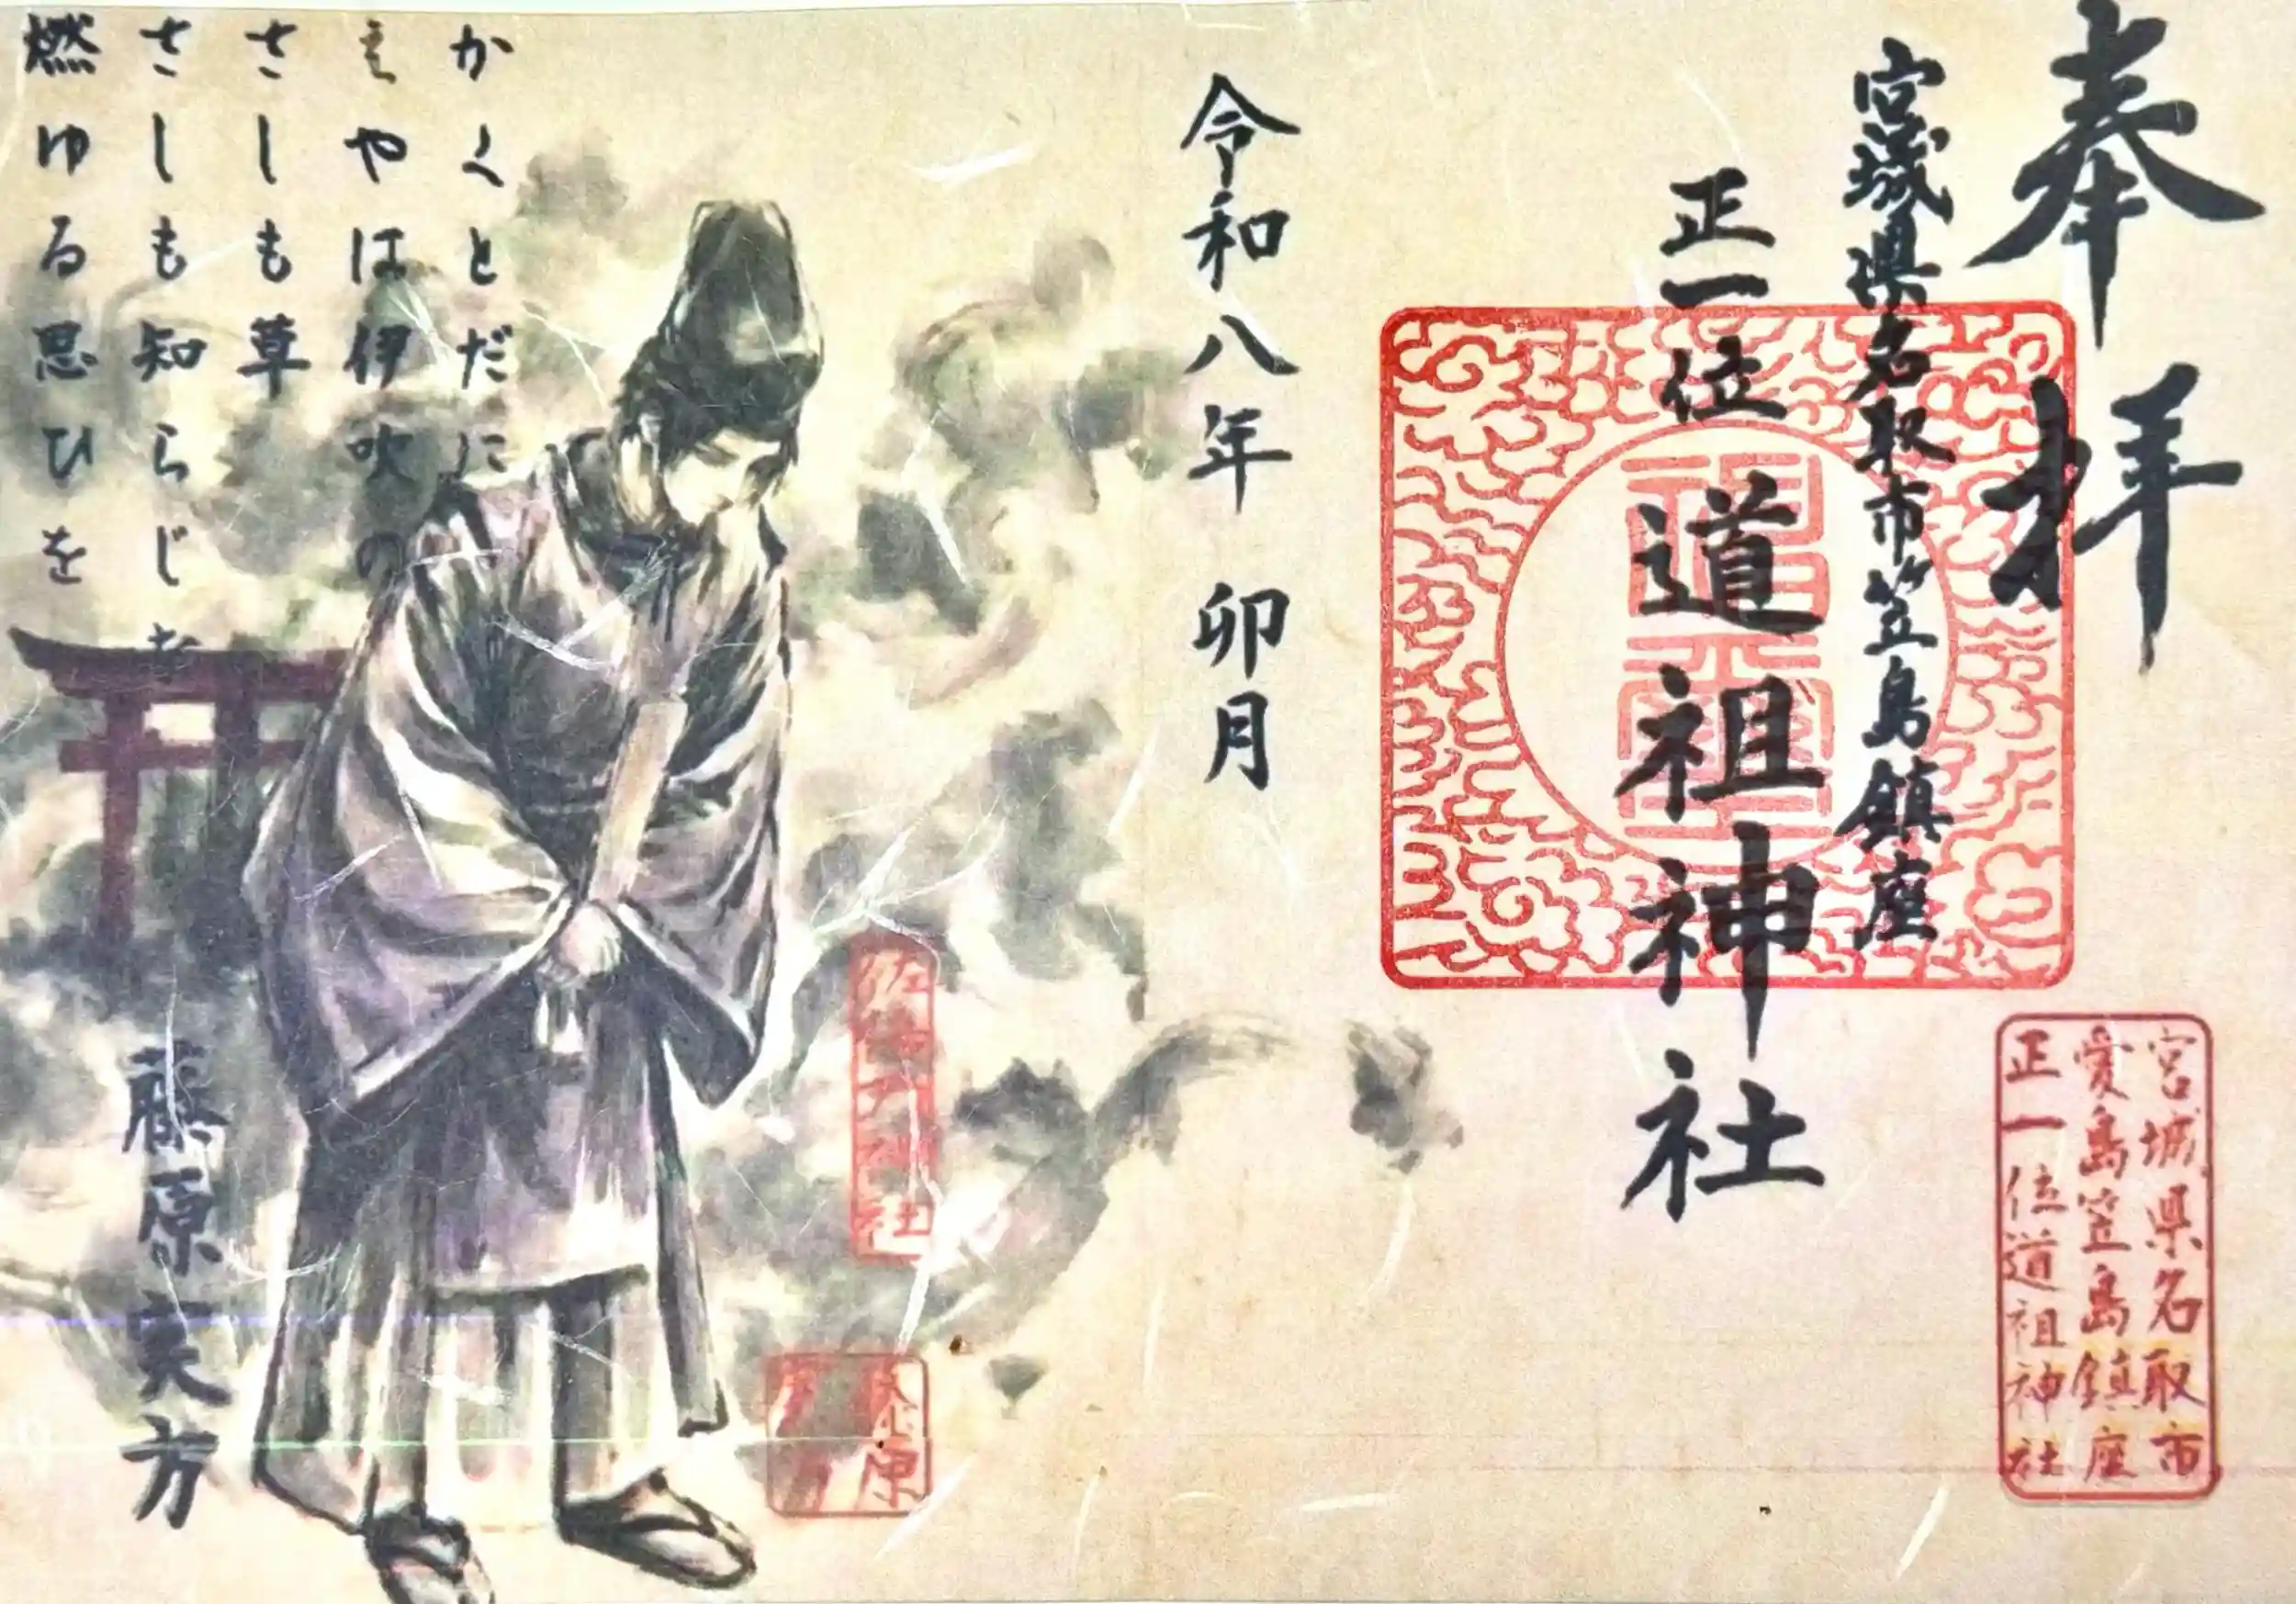 奉拝
宮城県名取市笠島鎮座
正一位
道祖神社
令和八年 卯月
かくとだに
えやは伊吹の
さしも草
さしも知らじな
燃ゆる思ひを
藤原実方
宮城県名取市
愛島笠島鎮座
正一位道祖神社